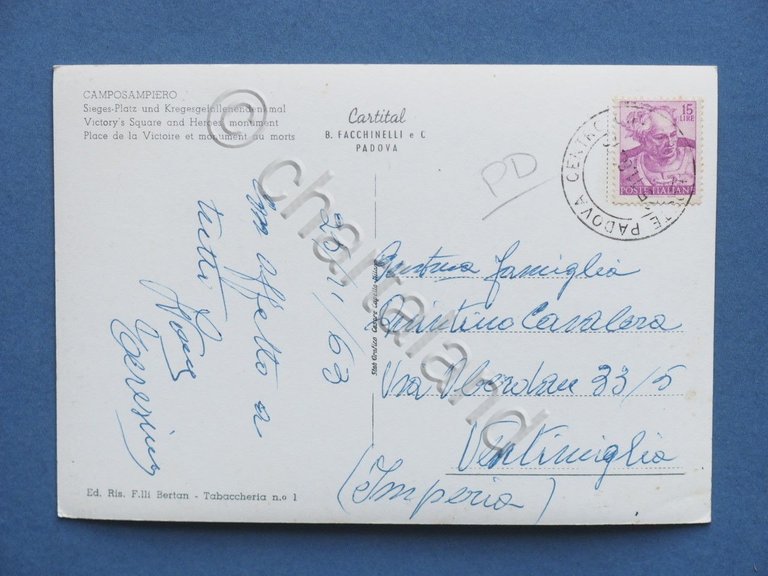 CAMPOSAMPIERO
Sieges-Platz und Kregesgefallenendenkmal
Victory's Square and Heroes monument
Place de la Victoire et monument au morts
Cartital
B. FACCHINELLI e C
PADOVA
15
LIRE
POSTE ITALIANE
PADOVA CENTRO
PD
25/1/63
con affetto a
tutti
Teresina
famiglia
Quintino Cavalera
Via Oberdan 33/5
Ventimiglia
(Imperia)
Ed. Ris. F.lli Bertan - Tabaccheria n.o 1
© chartaland